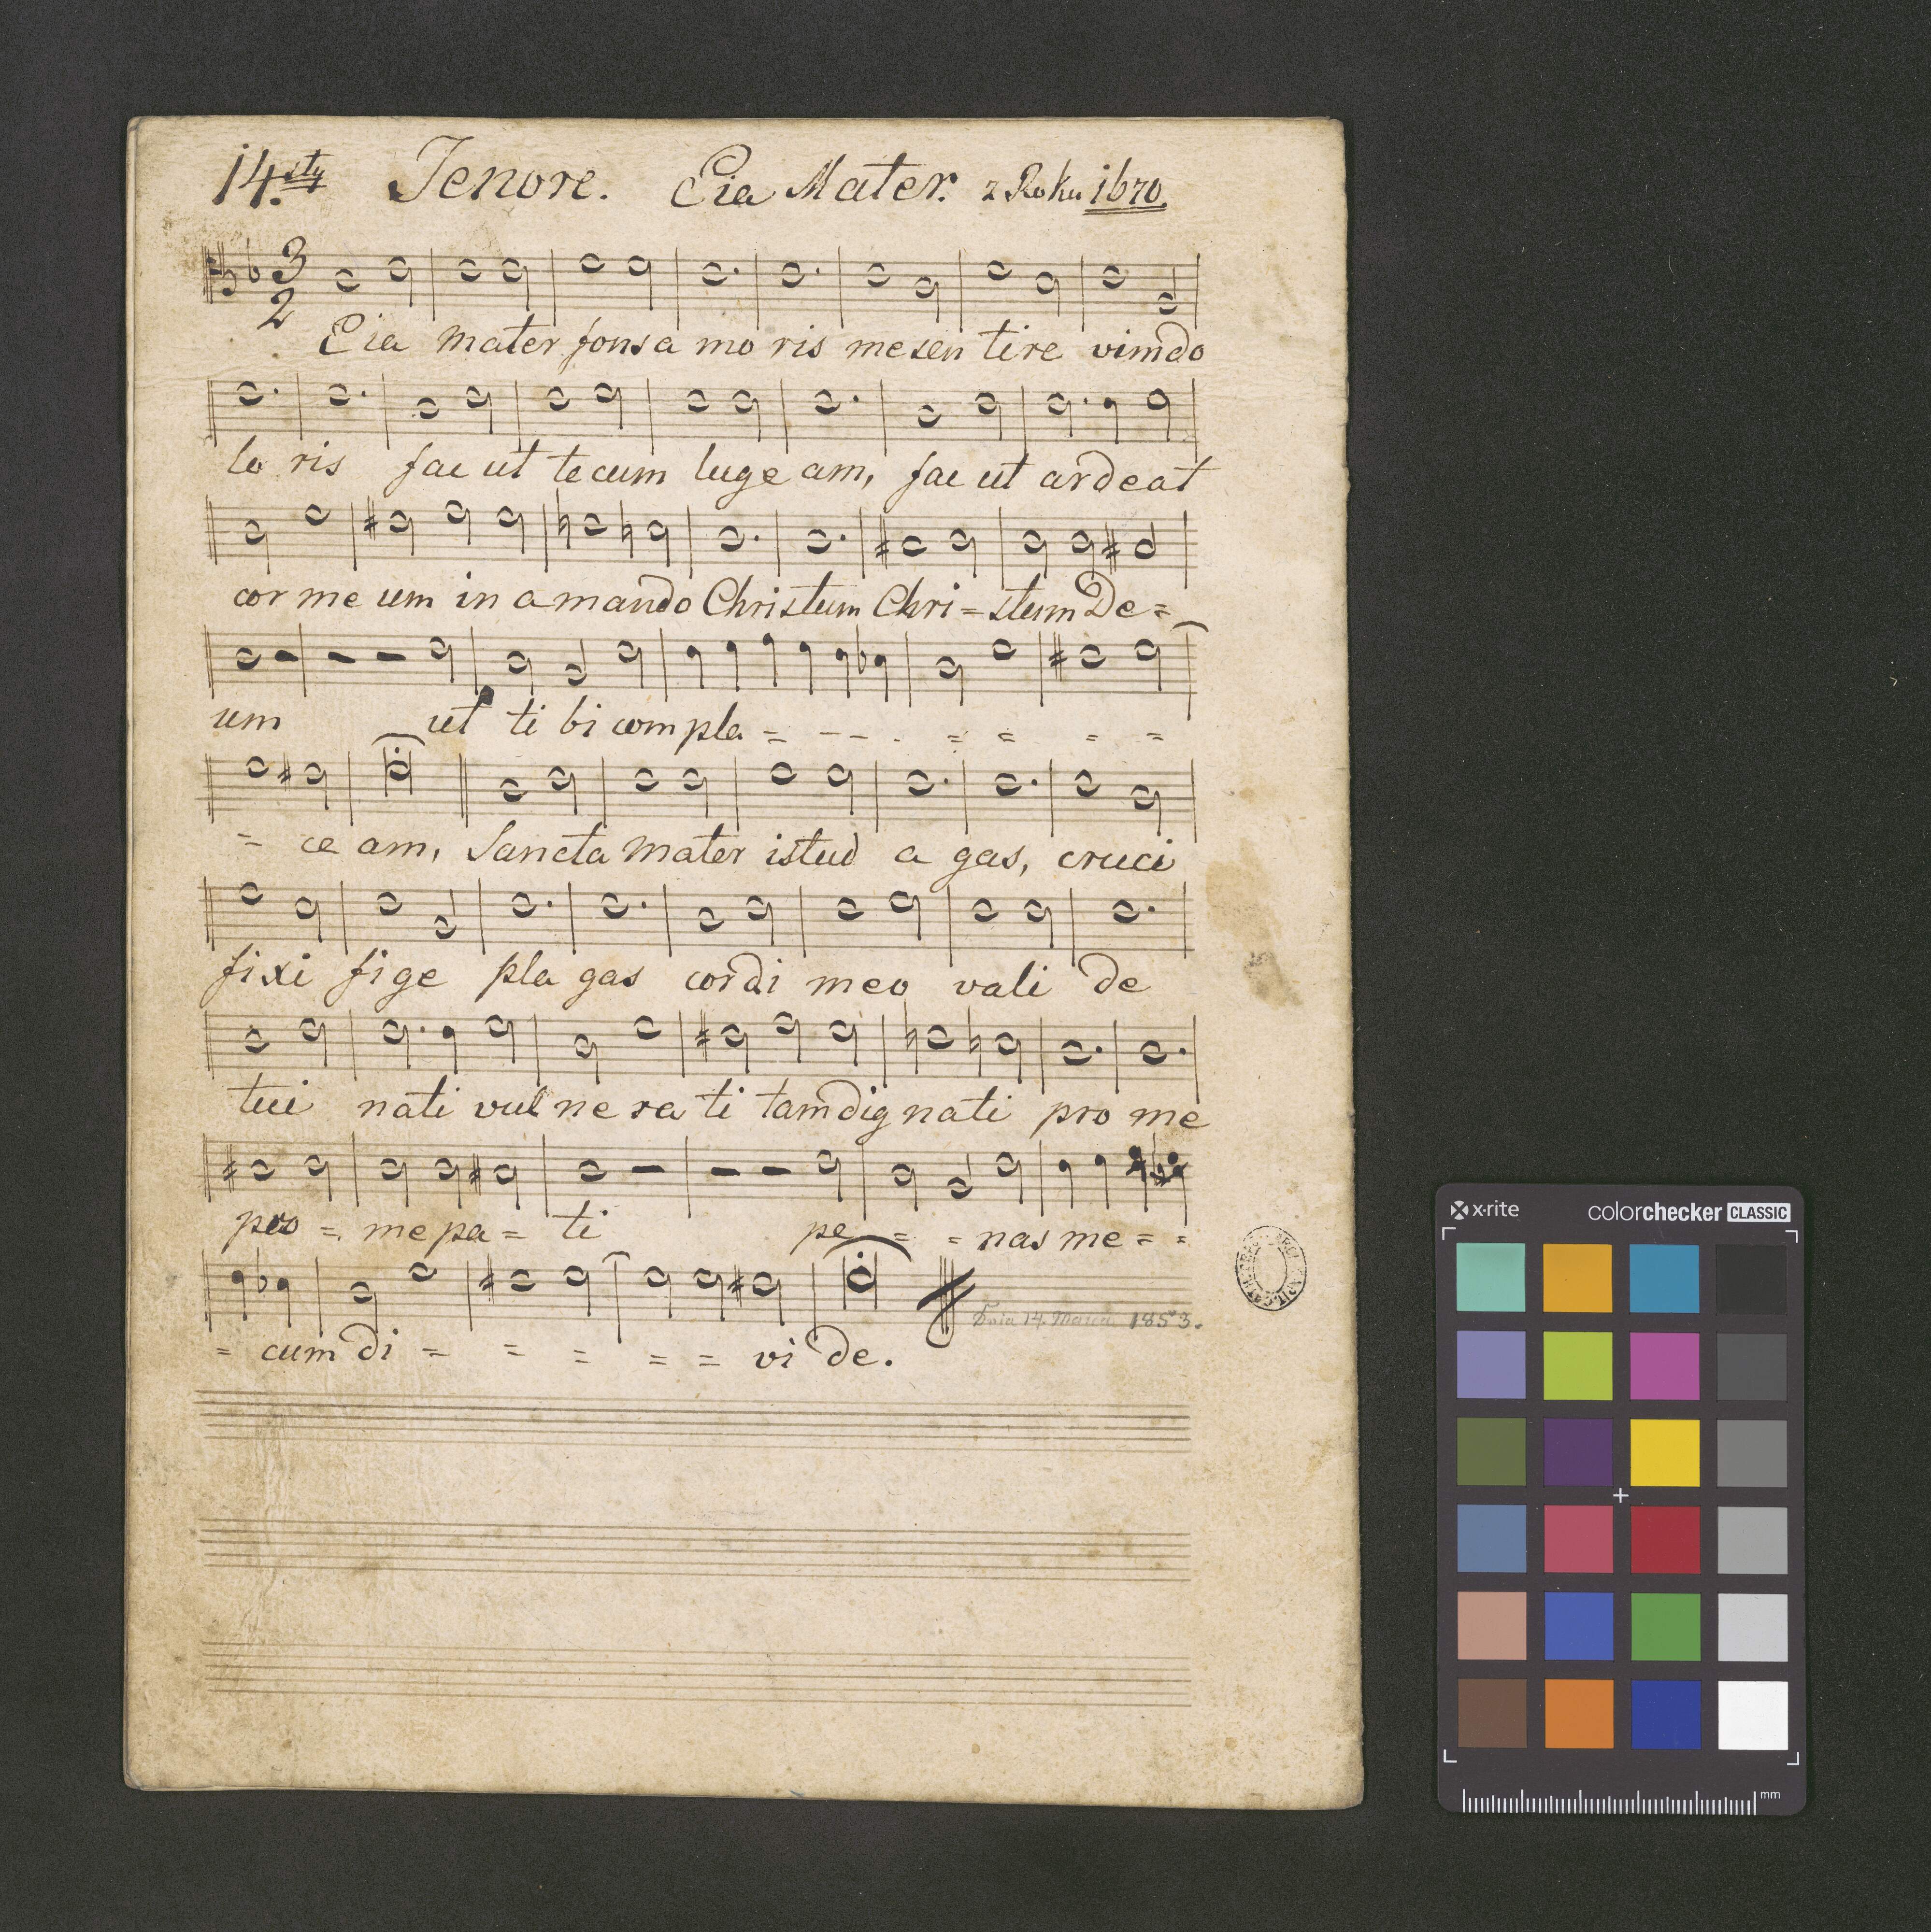 14.sty Tenore. Eia Mater. z Roku 1670.
3
2
Eia mater fons a mo ris me sen tire vim do
lo ris fac ut tecum luge am, fac ut ardeat
cor me um in a mando Christum Chri = stum De =
um ut ti bi com pla = - - - = = = =
= ce am, Sancta mater istud a gas, cruci
fixi fi ge pla gas cordi meo vali de
tui nati vul ne ra ti tam dig nati pro me
pro = me pa = ti pe = = nas me = =
= cum di = = = = = vi de.
14. 1853.
x·rite colorchecker CLASSIC
mm